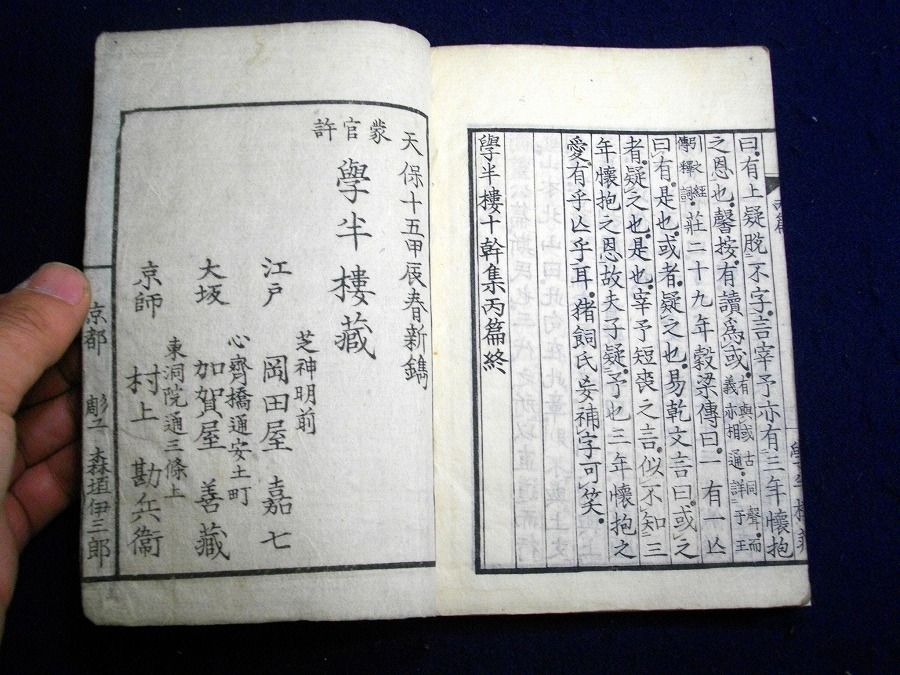 曰有上疑脫不字言宰予亦有三年懷抱
之恩也馨按有讀爲或有與或古同聲而義亦相通詳于王
引之經傳釋詞莊二十九年穀梁傳曰一有一亾
曰有是也或者疑之也易乾文言曰或之
者疑之也是也宰予短喪之言似不知三
年懷抱之恩故夫子疑予也三年懷抱之
愛有乎亾乎耳猪飼氏妄補字可笑
學半樓十幹集丙篇終
天保十五甲辰春新鐫
蒙官許
學半樓藏
芝神明前
江戶 岡田屋嘉七
心齊橋通安土町
大坂 加賀屋善藏
東洞院通三條上
京師 村上勘兵衞
京都 彫工 森垣伊三郎